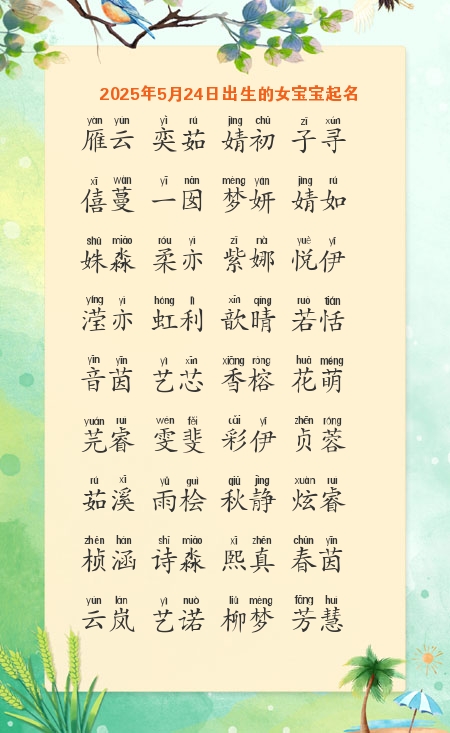 2025年5月24日出生的女宝宝起名
yàn yún yì rú jìng chū zǐ xún
雁云 奕茹 婧初 子寻
xī wàn yī nān mèng yán jìng rú
僖蔓 一囡 梦妍 婧如
shū miǎo róu yì zǐ nà yuè yī
姝淼 柔亦 紫娜 悦伊
yíng yì hóng lì xīn qíng ruò tián
滢亦 虹利 歆晴 若恬
yīn yīn yì xīn xiāng róng huā méng
音茵 艺芯 香榕 花萌
yuán ruì wén fěi cǎi yī zhēn róng
芫睿 雯斐 彩伊 贞蓉
rú xī yǔ guì qiū jìng xuàn ruì
茹溪 雨桧 秋静 炫睿
zhēn hán shī miǎo xī zhēn chūn yīn
桢涵 诗淼 熙真 春茵
yún lán yì nuò liǔ mèng fāng huì
云岚 艺诺 柳梦 芳慧